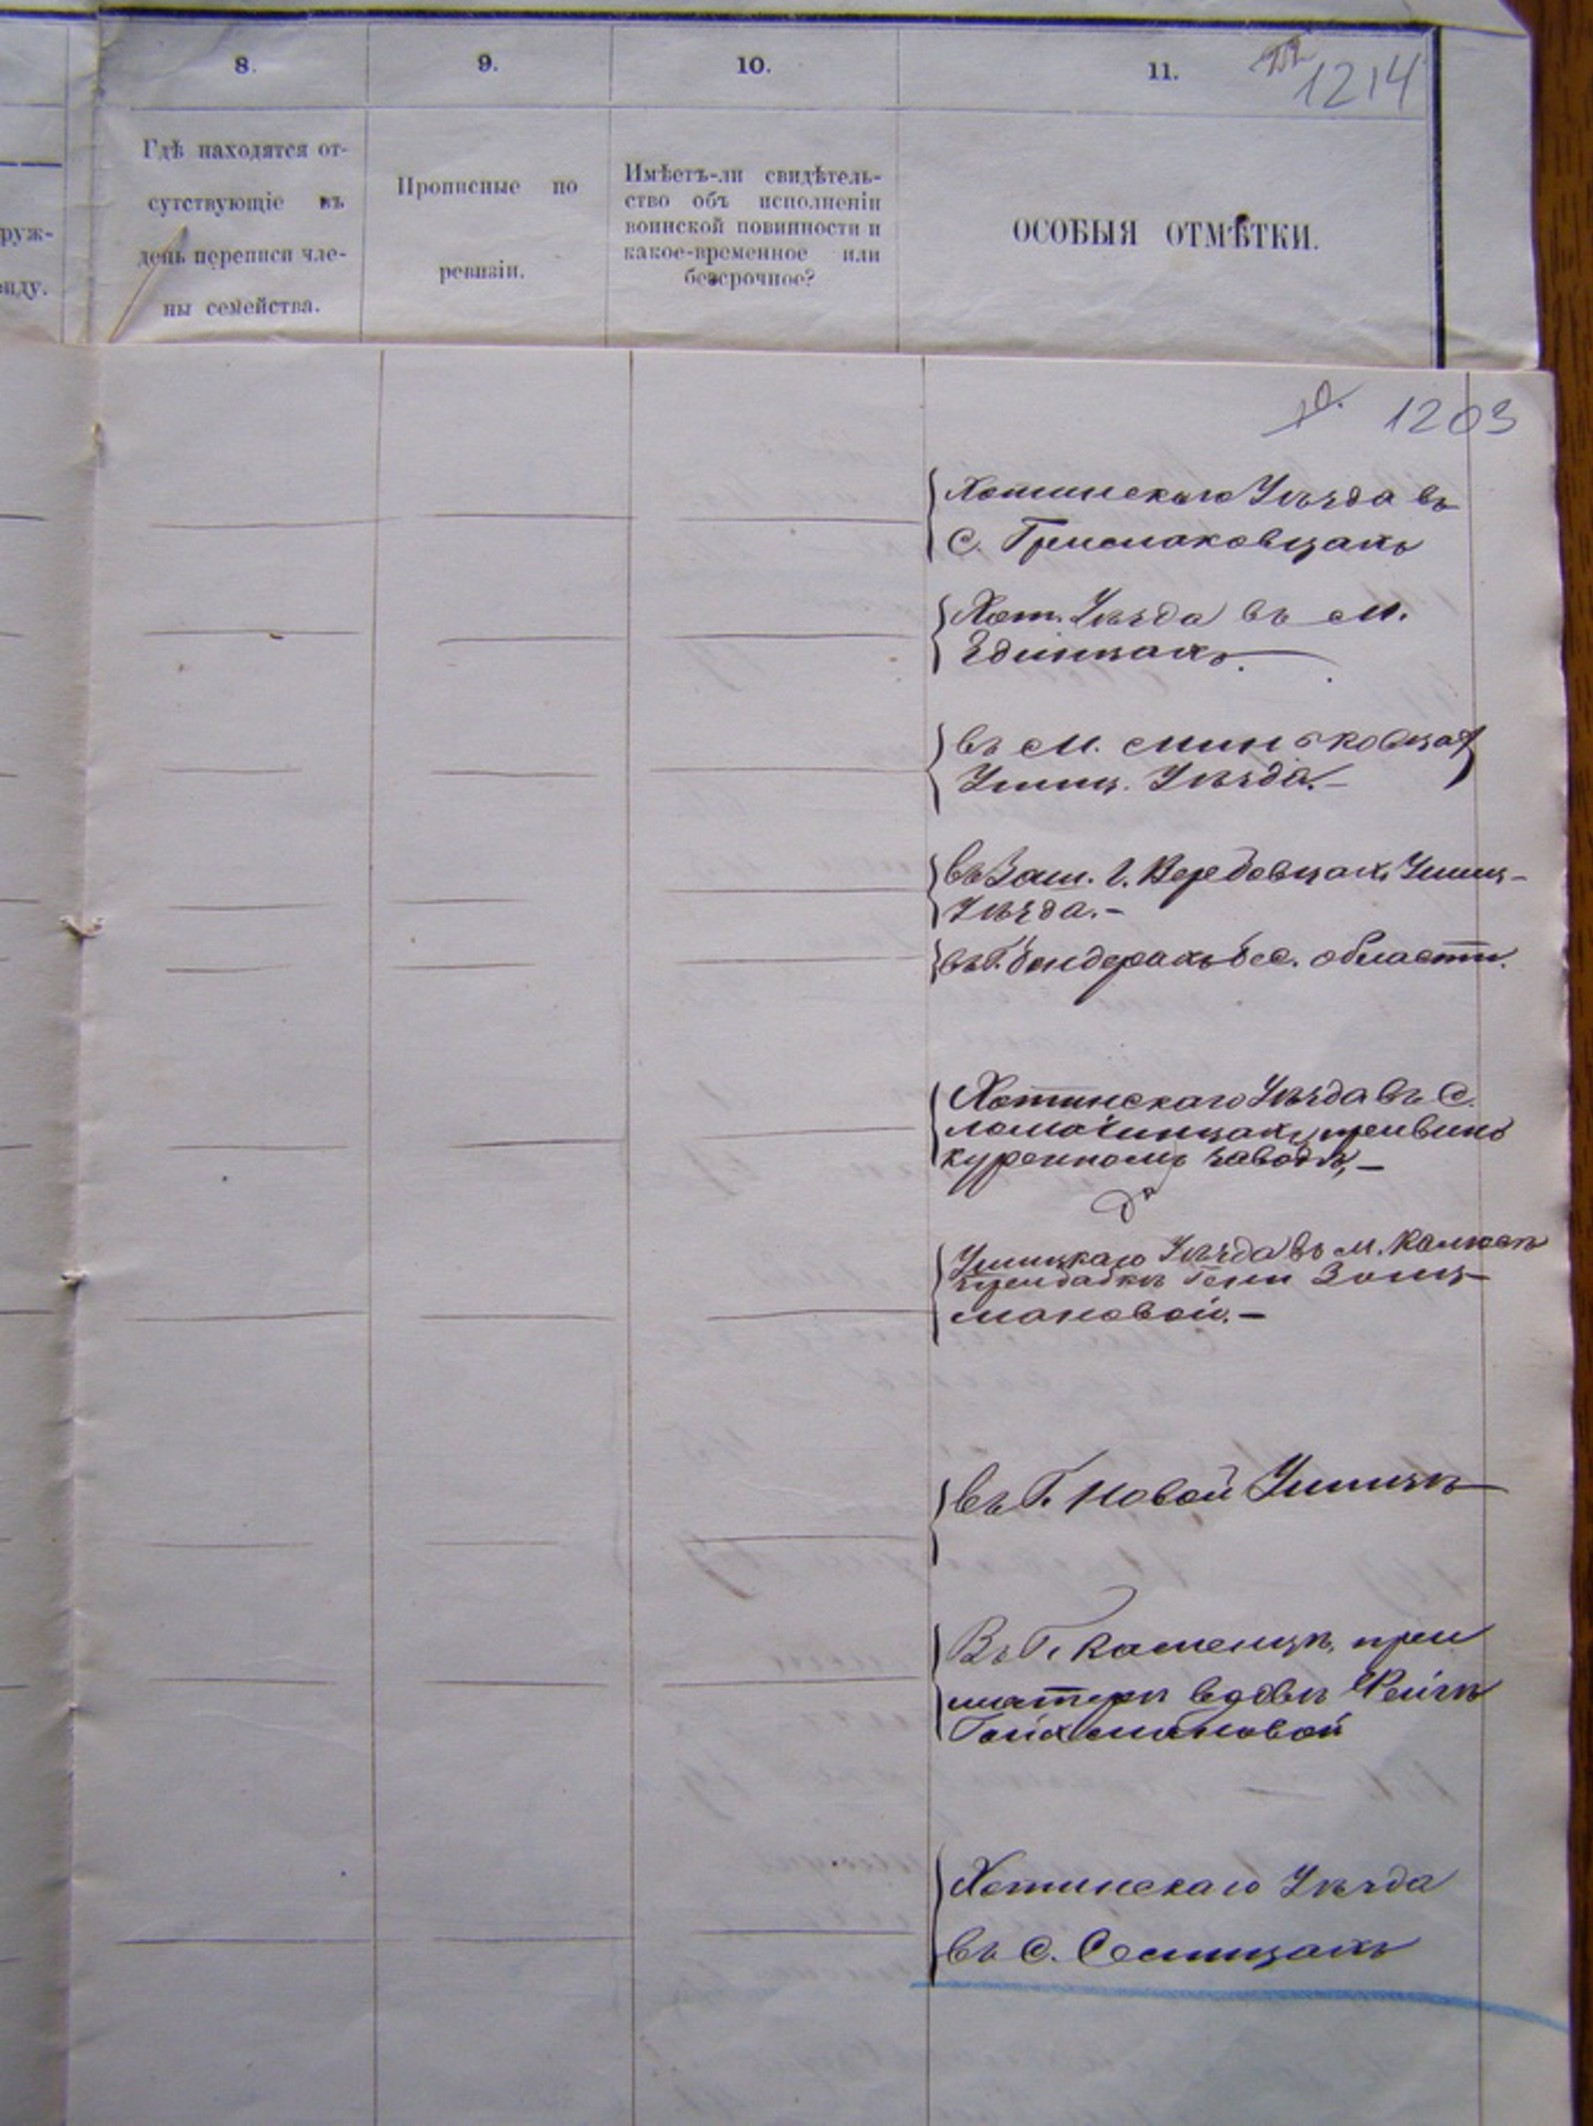 8.
9.
10.
11.
1214
Гдѣ находятся от-
сутствующіе въ
день переписи чле-
ны семейства.
Прописные по
ревизіи.
Имѣетъ-ли свидѣтель-
ство объ исполненіи
воинской повинности и
какое-временное или
безсрочное?
ОСОБЫЯ ОТМѢТКИ.
руж-
нду.
1203
Хотинскаго Уѣзда въ
С.
Хот. Уѣзда въ М.
Единцахъ.
въ М. Миньковцах
Ушиц. Уѣзда.
въ Г. Ушиц-
Уѣзда.
въ Г. Бендерахъ Бес. области.
Хотинскаго Уѣзда въ С.
Ломачинцахъ при вино
куренномъ заводѣ,
Ушицкаго Уѣзда въ М. Калюсѣ
при Зонц-
мановой.
въ Г. Новой Ушицѣ
Въ Г. Каменцѣ, при
матери вдовѣ
Гойхмановой
Хотинскаго Уѣзда
въ С.